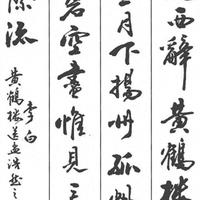 西辭黃鶴樓
三月下揚州孤帆
碧空盡惟見
際流
李白
黃鶴樓送孟浩然之